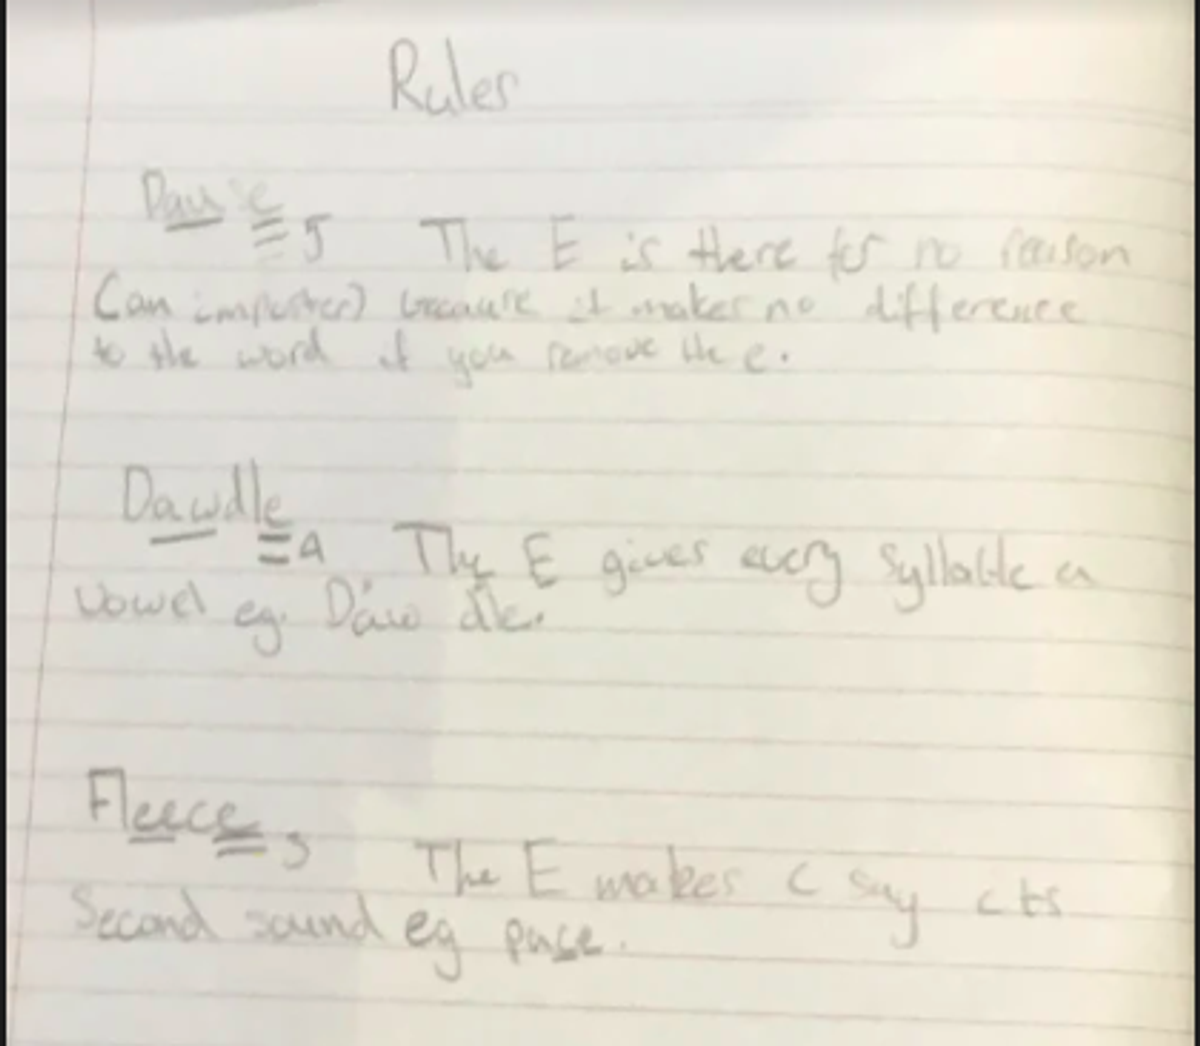 Rules
Pause 5 The E is there for no reason
(an imposter) because it makes no difference
to the word if you remove the e.
Dawdle 4 The E gives every syllable a
vowel eg. Daw dle.
Fleece 3 The E makes C say its
Second sound eg pace.